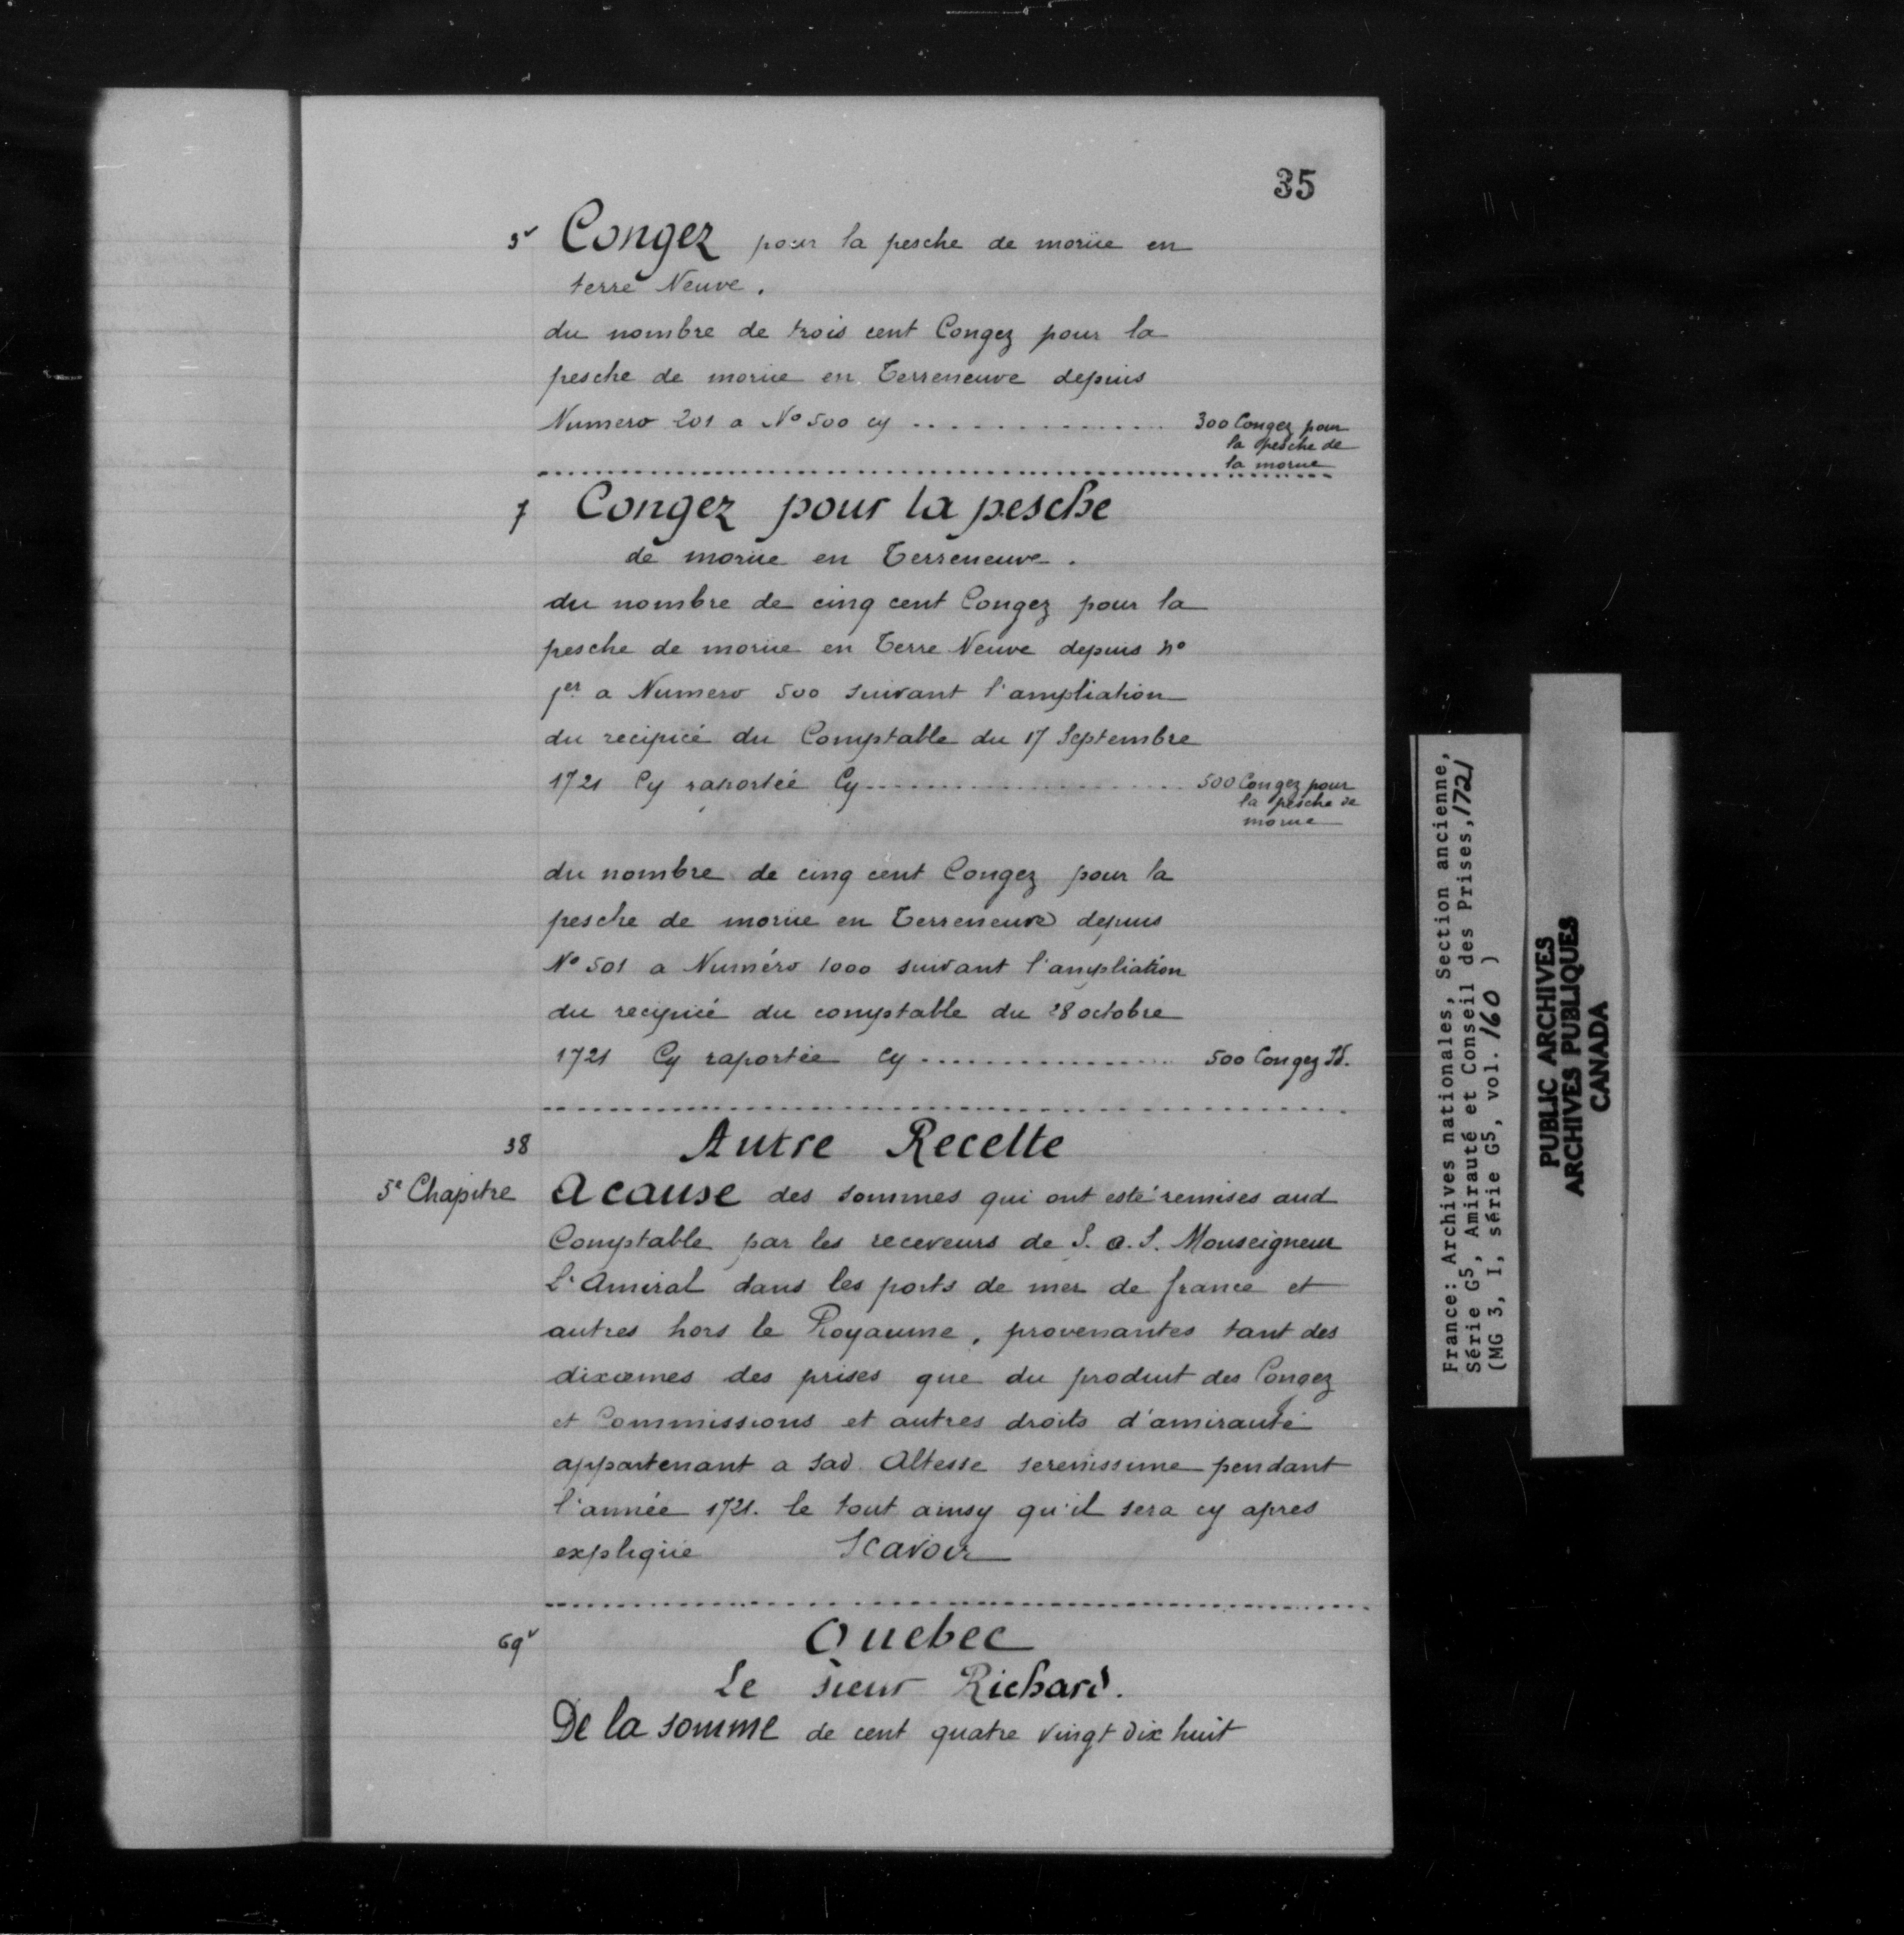 35
3v Congez pour la pesche de morüe en
terre Neuve.
du nombre de trois cent Congez pour la
pesche de morüe en Terreneuve depuis
Numero 201 a No 500 cy .............. 300 Congez pour
la pesche de
la morue
7 Congez pour la pesche
de morüe en Terreneuve.
du nombre de cinq cent Congez pour la
pesche de morüe en Terre Neuve depuis no
1er a Numero 500 suivant l'ampliation
du recipicé du Comptable du 17 Septembre
1721 Cy raportéé Cy .............. 500 Congez pour
la pesche de
morue
du nombre de cinq cent Congez pour la
pesche de morüe en Terreneuve depuis
No 501 a Numéro 1000 suivant l'ampliation
du recipicé du comptable du 28 octobre
1721 Cy raportée cy .............. 500 Congez Id.
38 Autre Recette
5e Chapitre A cause des sommes qui ont esté remises aud
Comptable par les receveurs de S. a. S. Monseigneur
L'Amiral dans les ports de mer de france et
autres hors le Royaume, provenantes tant des
dixœmes des prises que du produit des Congez
et Commissions et autres droits d'amirauté
appartenant a sad. Altesse serenissime pendant
l'année 1721. le tout ainsy qu'il sera cy apres
expliqüé Scavoir
69v Quebec
Le Sieur Richard.
De la somme de cent quatre vingt dix huit
France: Archives nationales, Section ancienne,
Série G5, Amirauté et Conseil des Prises, 1721
(MG 3, I, série G5, vol. 160 )
PUBLIC ARCHIVES
ARCHIVES PUBLIQUES
CANADA